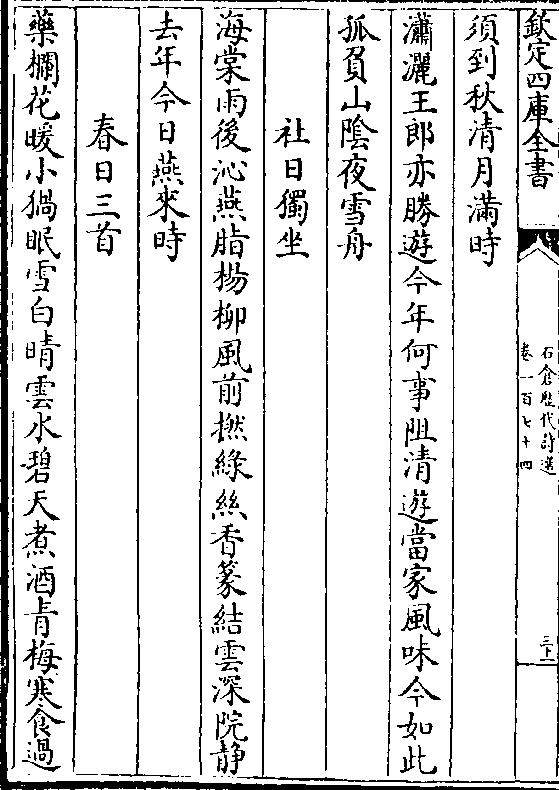 欽定四庫全書
石倉歷代詩選
卷一百七十四
三十一
須到秋清月滿時
瀟灑王郎亦勝遊今年何事阻清遊當家風味今如此
孤負山陰夜雪舟
社日獨坐
海棠雨後沁燕脂楊柳風前撚緑絲香篆結雲深院静
去年今日燕來時
春日三首
藥欄花暖小猧眠雪白晴雲水碧天煮酒青梅寒食過